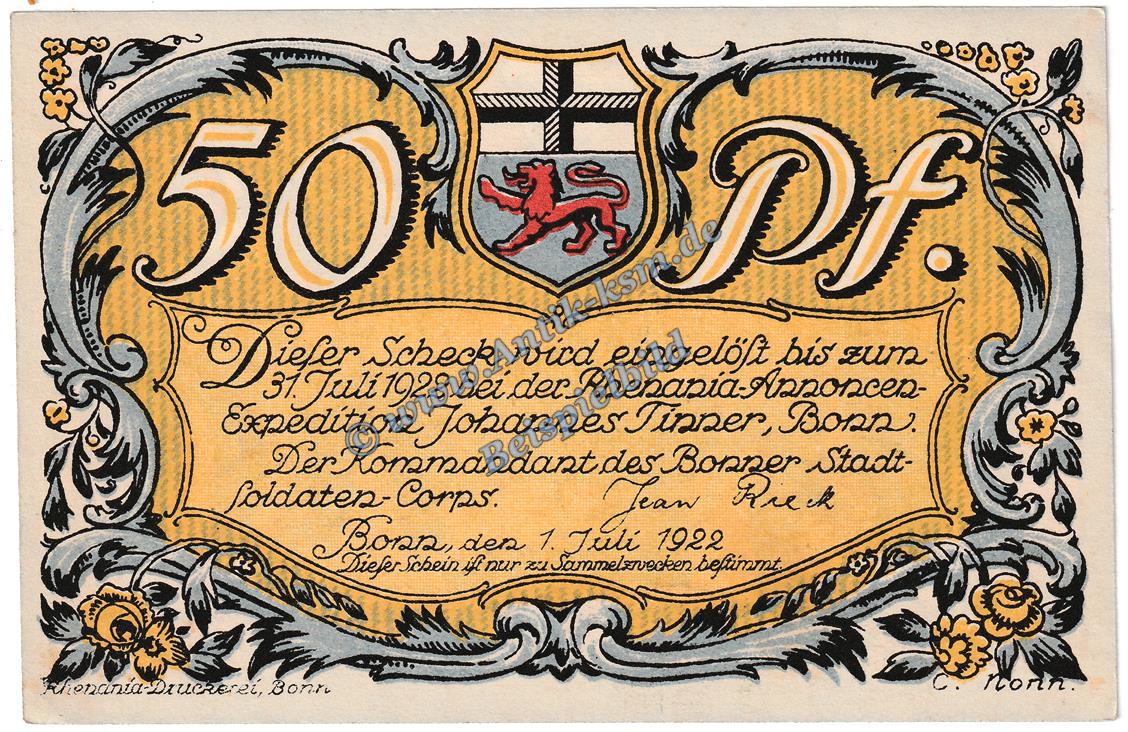 50 Pf.
Dieser Scheck wird eingelöst bis zum
31. Juli 1922 bei der Rhenania-Annoncen-
Expedition Johannes Tinner, Bonn.
Der Kommandant des Bonner Stadt-
soldaten-Corps. Jean Rieck
Bonn, den 1. Juli 1922
Dieser Schein ist nur zu Sammelzwecken bestimmt.
Rhenania-Druckerei, Bonn
C. Nonn.
© www.Antik-ksm.de
Beispielbild